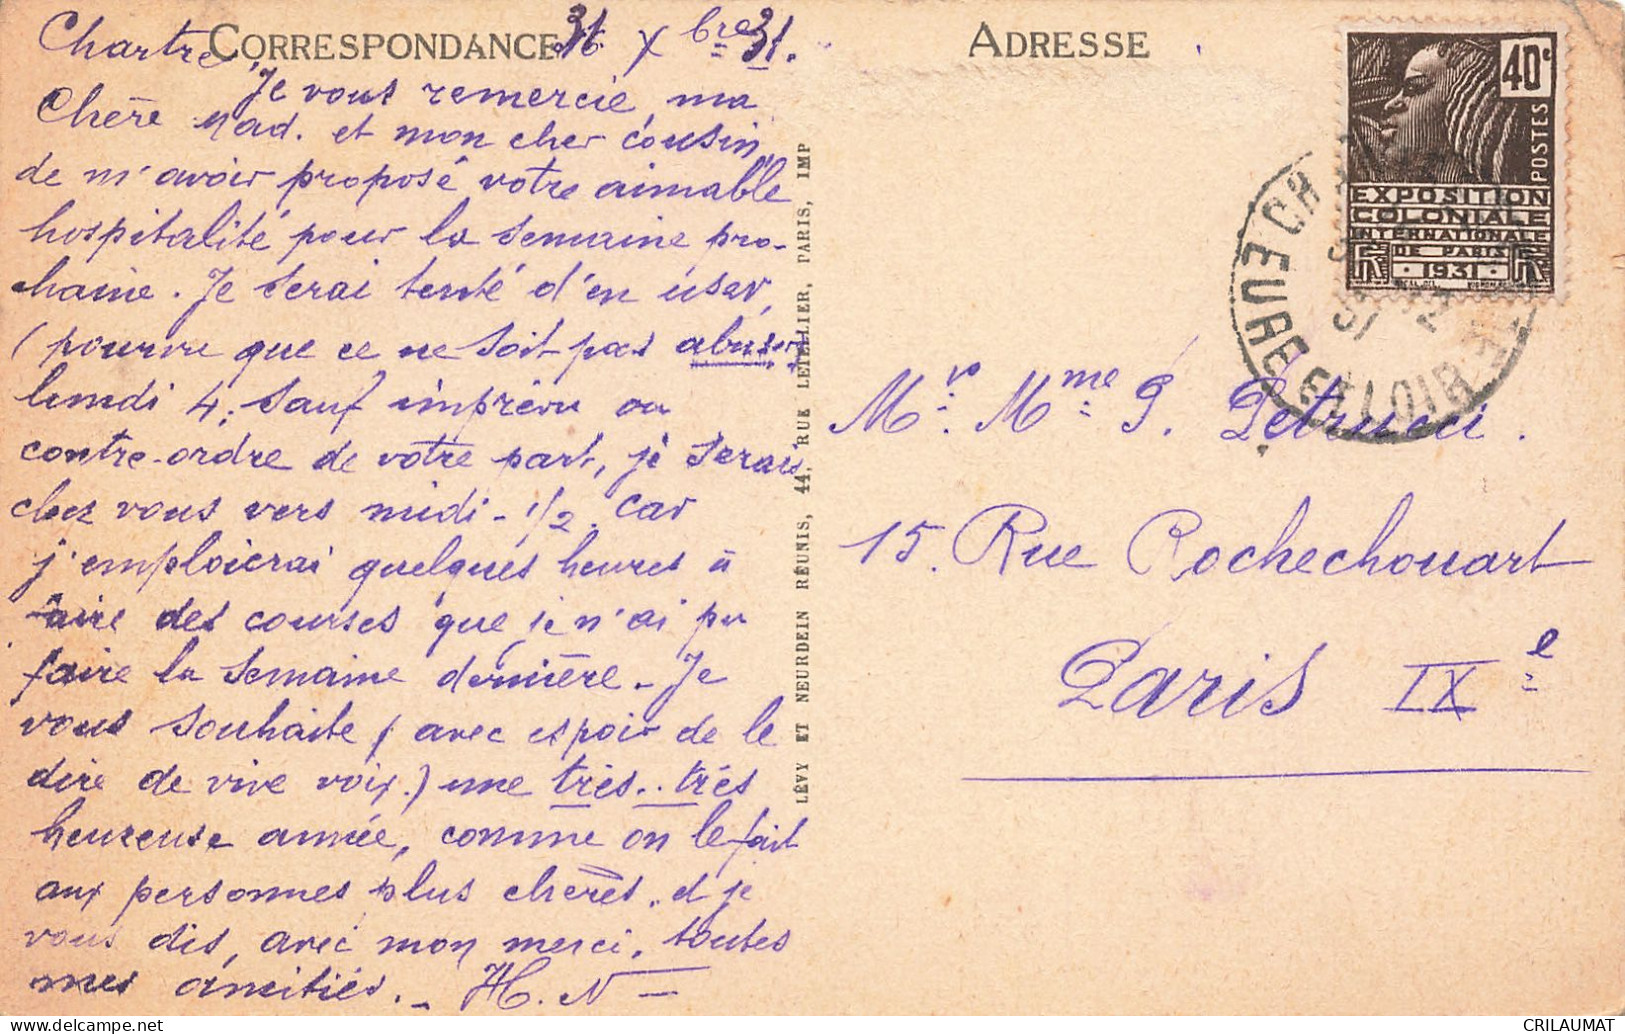 CORRESPONDANCE
ADRESSE
Chartre, 31 Xbre 31.
Je vous remercie, ma
Chère Mad. et mon cher cousin,
de m'avoir proposé votre aimable
hospitalité pour la semaine pro-
chaine. Je serai tenté d'en user,
(pourvu que ce ne soit pas abuser)
lundi 4. sauf imprévu ou
contre-ordre de votre part, je serais
chez vous vers midi - 1/2. car
j'emploierai quelques heures à
faire des courses que je n'ai pu
faire la semaine dernière - Je
vous souhaite (avec espoir de le
dire de vive voix.) une très.. très
heureuse année, comme on le fait
aux personnes plus chères. et je
vous dis, avec mon merci, toutes
mes amitiés. - H. N -
LÉVY ET NEURDEIN RÉUNIS, 44, RUE LETELLIER, PARIS, IMP
40c
POSTES
EXPOSITION
COLONIALE
INTERNATIONALE
DE PARIS
RF · 1931 · RF
EURE ET LOIR
Mr. Mme P. Petrucci.
15. Rue Rochechouart
Paris IXe
CRILAUMAT